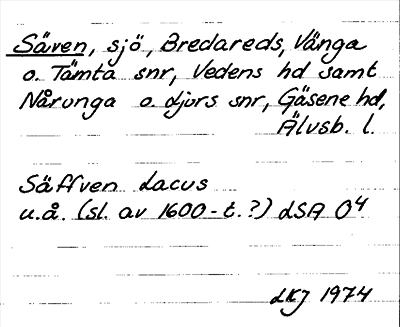 Säven, sjö, Bredareds, Vänga
o. Tämta snr, Vedens hd samt
Nårunga o. Ljurs snr, Gäsene hd,
Älvsb. l.
Säffven Lacus
u.å. (sl. av 1600-t.?) LSA O4
LKJ 1974